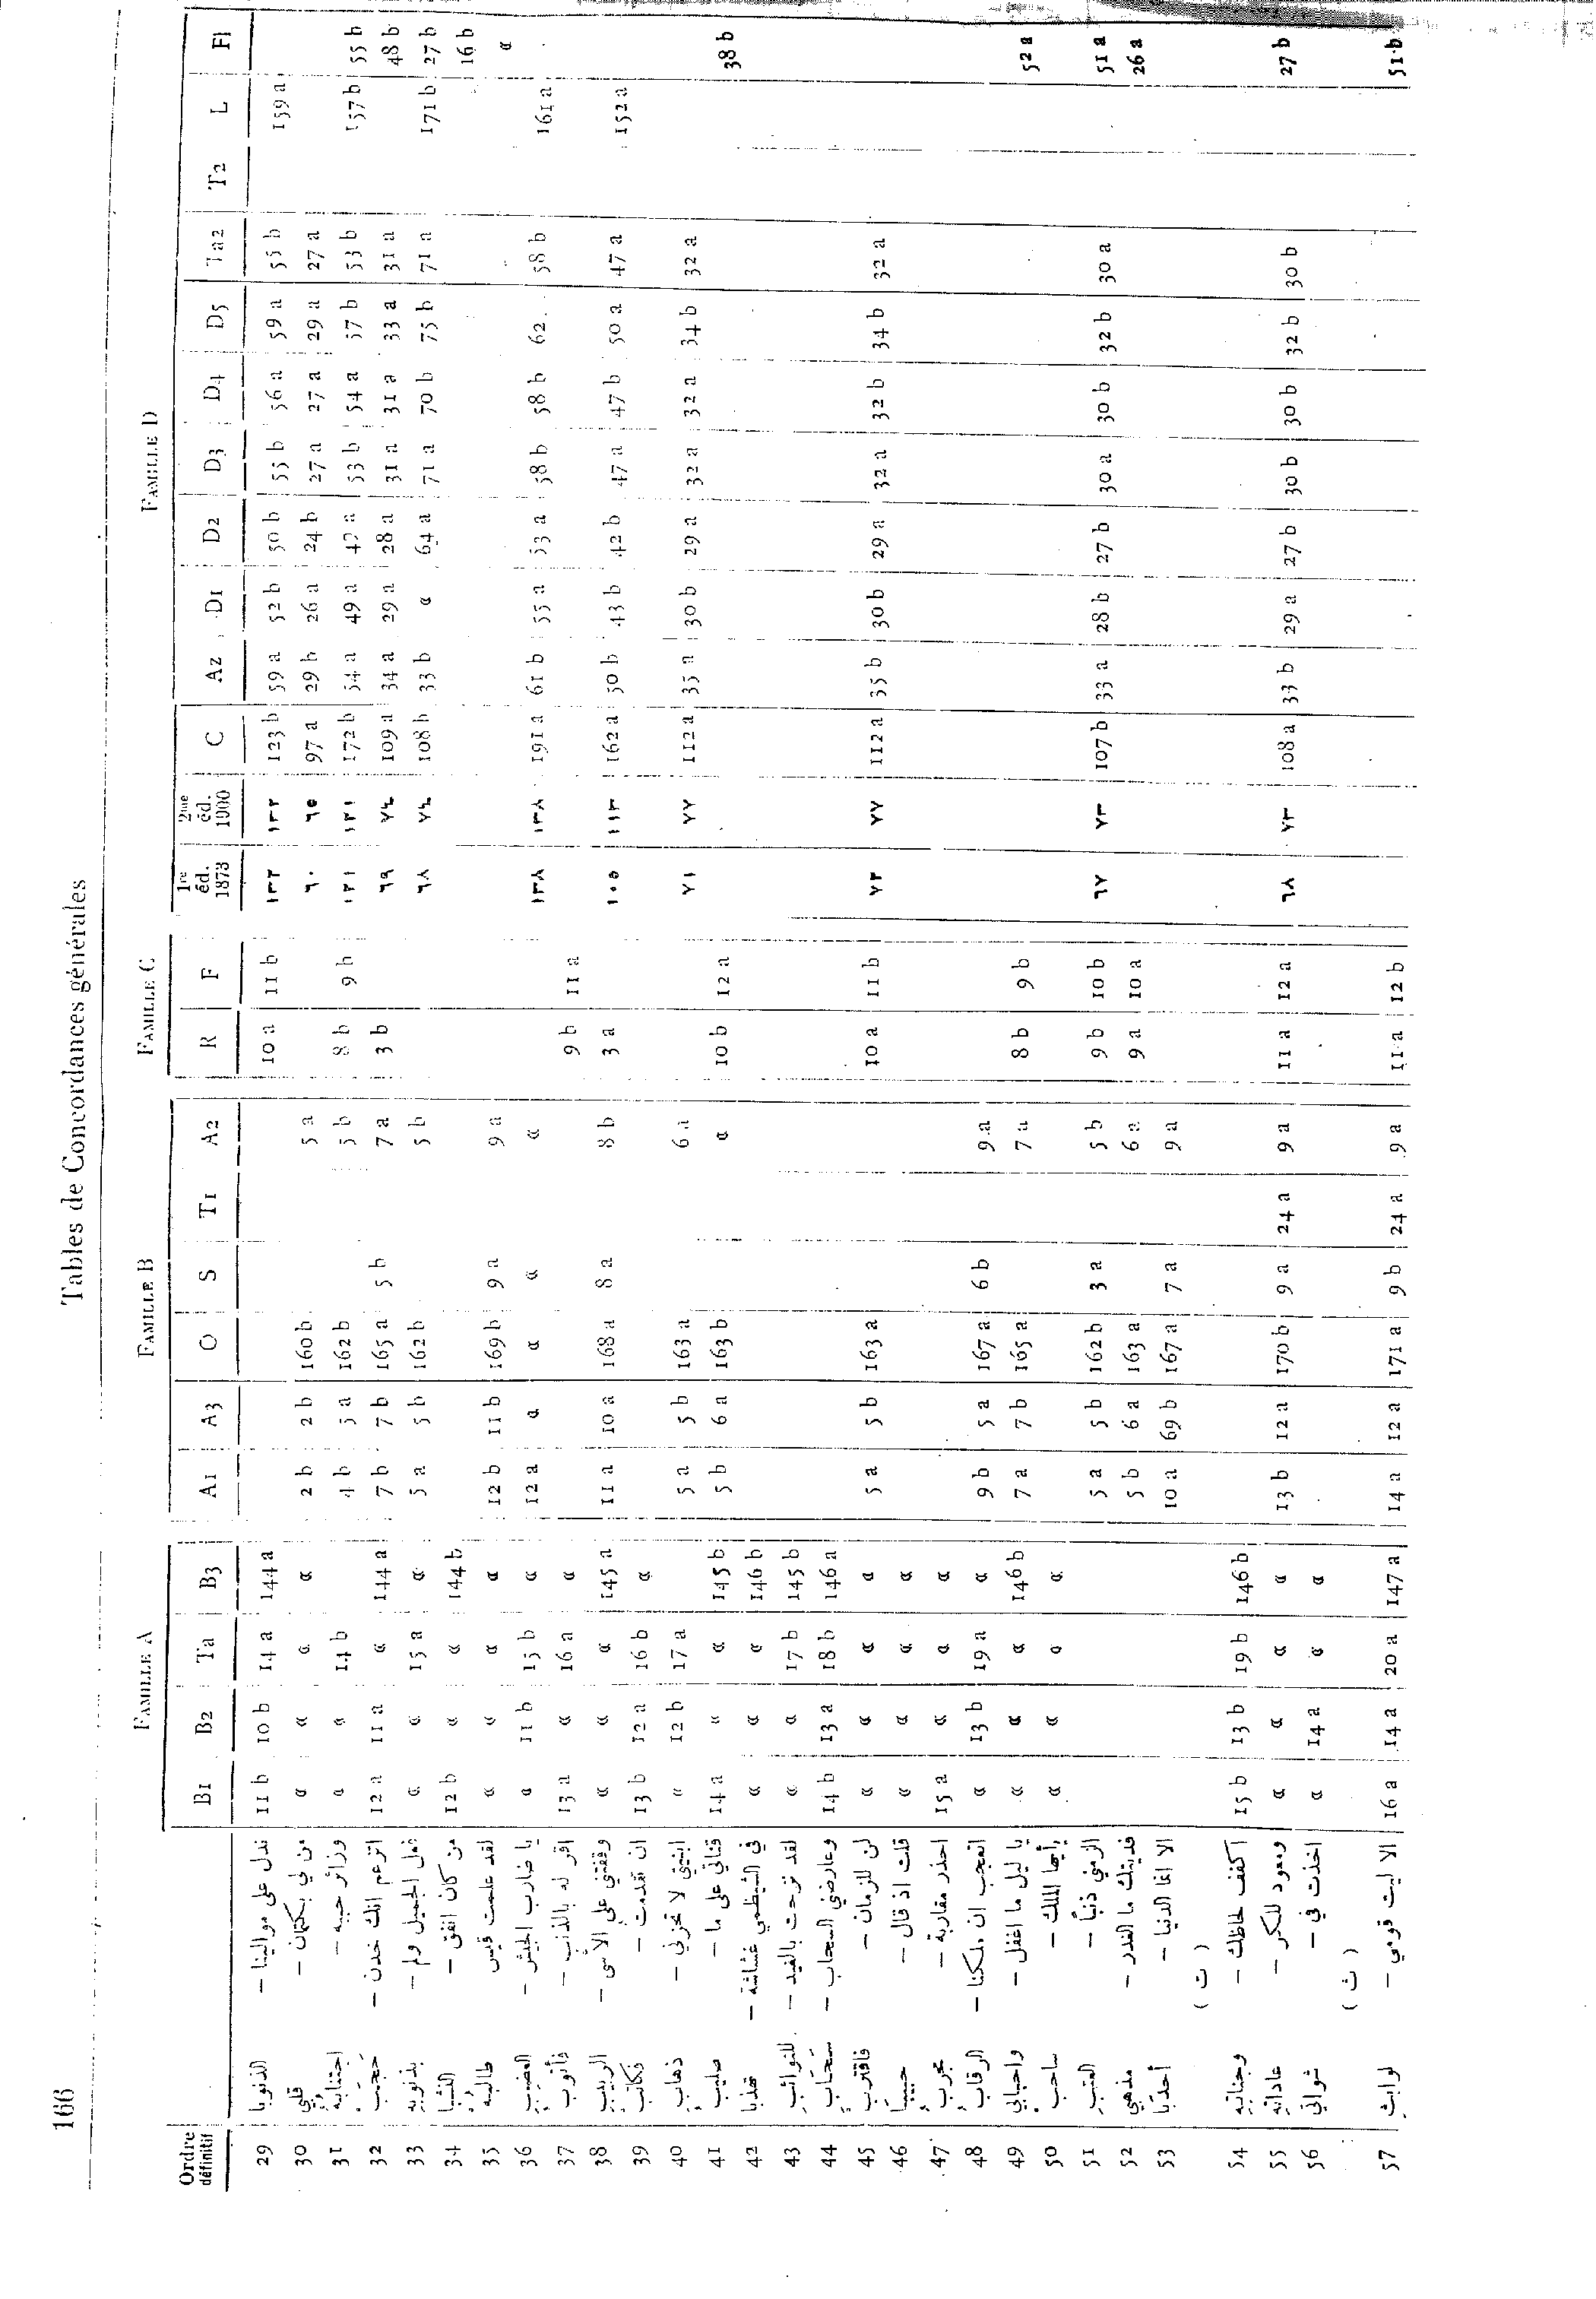 166 Tables de Concordances générales
FAMILLE A FAMILLE B FAMILLE C FAMILLE D
Ordre définitif B1 B2 Ta B3 A1 A3 O S T1 A2 R F 1re éd. 1873 2me éd. 1900 C A2 D1 D2 D3 D4 D5 Ta2 T2 L Fl
29 الذنوبا ندل على موالينا – 11 b 10 b 14 a 144 a 10 a 11 b ١٣٢ ١٣٢ 123 b 59 a 52 b 50 b 55 b 56 a 59 a 55 b 159 a
30 قلبي من لي بكتمان – « « « « 2 b 2 b 160 b 5 a ٦٠ ٦٥ 97 a 29 b 26 a 24 b 27 a 27 a 29 a 27 a
31 اجتنابه وزائر حببه – « « 14 b 4 b 5 a 162 b 5 b 8 b 9 b ١٢١ ١٢١ 172 b 54 a 49 a 47 a 53 b 54 a 57 b 53 b 157 b 55 b
32 حجب اتزعم انك خدن – 12 a 11 a « 144 a 7 b 7 b 165 a 5 b 7 a 3 b ٦٩ ٧٤ 109 a 34 a 29 a 28 a 31 a 31 a 33 a 31 a 48 b
33 بذنوبه فعل الجميل ولم – « « 15 a « 5 a 5 b 162 b 5 b ٦٨ ٧٤ 108 b 33 b « 64 a 71 a 70 b 75 b 71 a 171 b 27 b
34 النشبا من كان انفق – 12 b « « 144 b 16 b
35 طالبه لقد علمت قيس « « « « 12 b 11 b 169 b 9 a 9 a «
36 الغضب يا ضارب الجيش – « 11 b 15 b « 12 a « « « « ١٣٨ ١٣٨ 191 a 61 b 55 a 53 a 58 b 58 b 62 58 b 161 a
37 فأتوب اقر له بالذنب – 13 a « 16 a « 9 b 11 a
38 الربيب وقفتني على الاسى – « « « 145 a 11 a 10 a 168 a 8 a 8 b 3 a ١٠٥ ١١٣ 162 a 50 b 43 b 42 b 47 a 47 b 50 a 47 a 152 a
39 فكاتب ان تقدمت – 13 b 12 a 16 b «
40 ذهاب ابنيتي لا تحزني – « 12 b 17 a 5 a 5 b 163 a 6 a ٧١ ٧٧ 112 a 35 a 30 b 29 a 32 a 32 a 34 b 32 a
41 صليب قناتي على ما – 14 a « « 145 b 5 b 6 a 163 b « 10 b 12 a 38 b
42 تهذبا في الشيظمي غشاشة – « « « 146 b
43 للنوائب لقد نزحت بالغيد – « « 17 b 145 b
44 سحاب وعارضني السحاب – 14 b 13 a 18 b 146 a
45 فاقترب لن للزمان – « « « « 5 a 5 b 163 a 10 a 11 b ٧٢ ٧٧ 112 a 35 b 30 b 29 a 32 a 32 b 34 b 32 a
46 حبيبا قلت اذ قال – « « « «
47 مجرب احذر مقاربة – 15 a « « «
48 الرقاب اتعجب ان ملكنا – « 13 b 19 a « 9 b 5 a 167 a 6 b 9 a
49 واحبابي يا ليل ما اغفل – « « « 146 b 7 a 7 b 165 a 7 a 8 b 9 b 52 a
50 ساحب يأيها الملك – « « « «
51 العتب الزمني ذنبًا – 5 a 5 b 162 b 3 a 5 b 9 b 10 b ٦٧ ٧٣ 107 b 33 a 28 b 27 b 30 a 30 b 32 b 30 a 51 a
52 مذهبي فديتك ما الغدر – 5 b 6 a 163 a 6 a 9 a 10 a 26 a
53 أحدبا الا انما الدنيا – 10 a 69 b 167 a 7 a 9 a
( ت )
54 وجناته اكفف لحاظك – 15 b 13 b 19 b 146 b
55 عاداته ومعود للكر – « « « « 13 b 12 a 170 b 9 a 24 a 9 a 11 a 12 a ٦٨ ٧٣ 108 a 33 b 29 a 27 b 30 b 30 b 32 b 30 b 27 b
56 شواتي اخذت في – « 14 a « «
( ث )
57 لوابث الا ليت قومي – 16 a 14 a 20 a 147 a 14 a 12 a 171 a 9 b 24 a 9 a 11 a 12 b 51 b